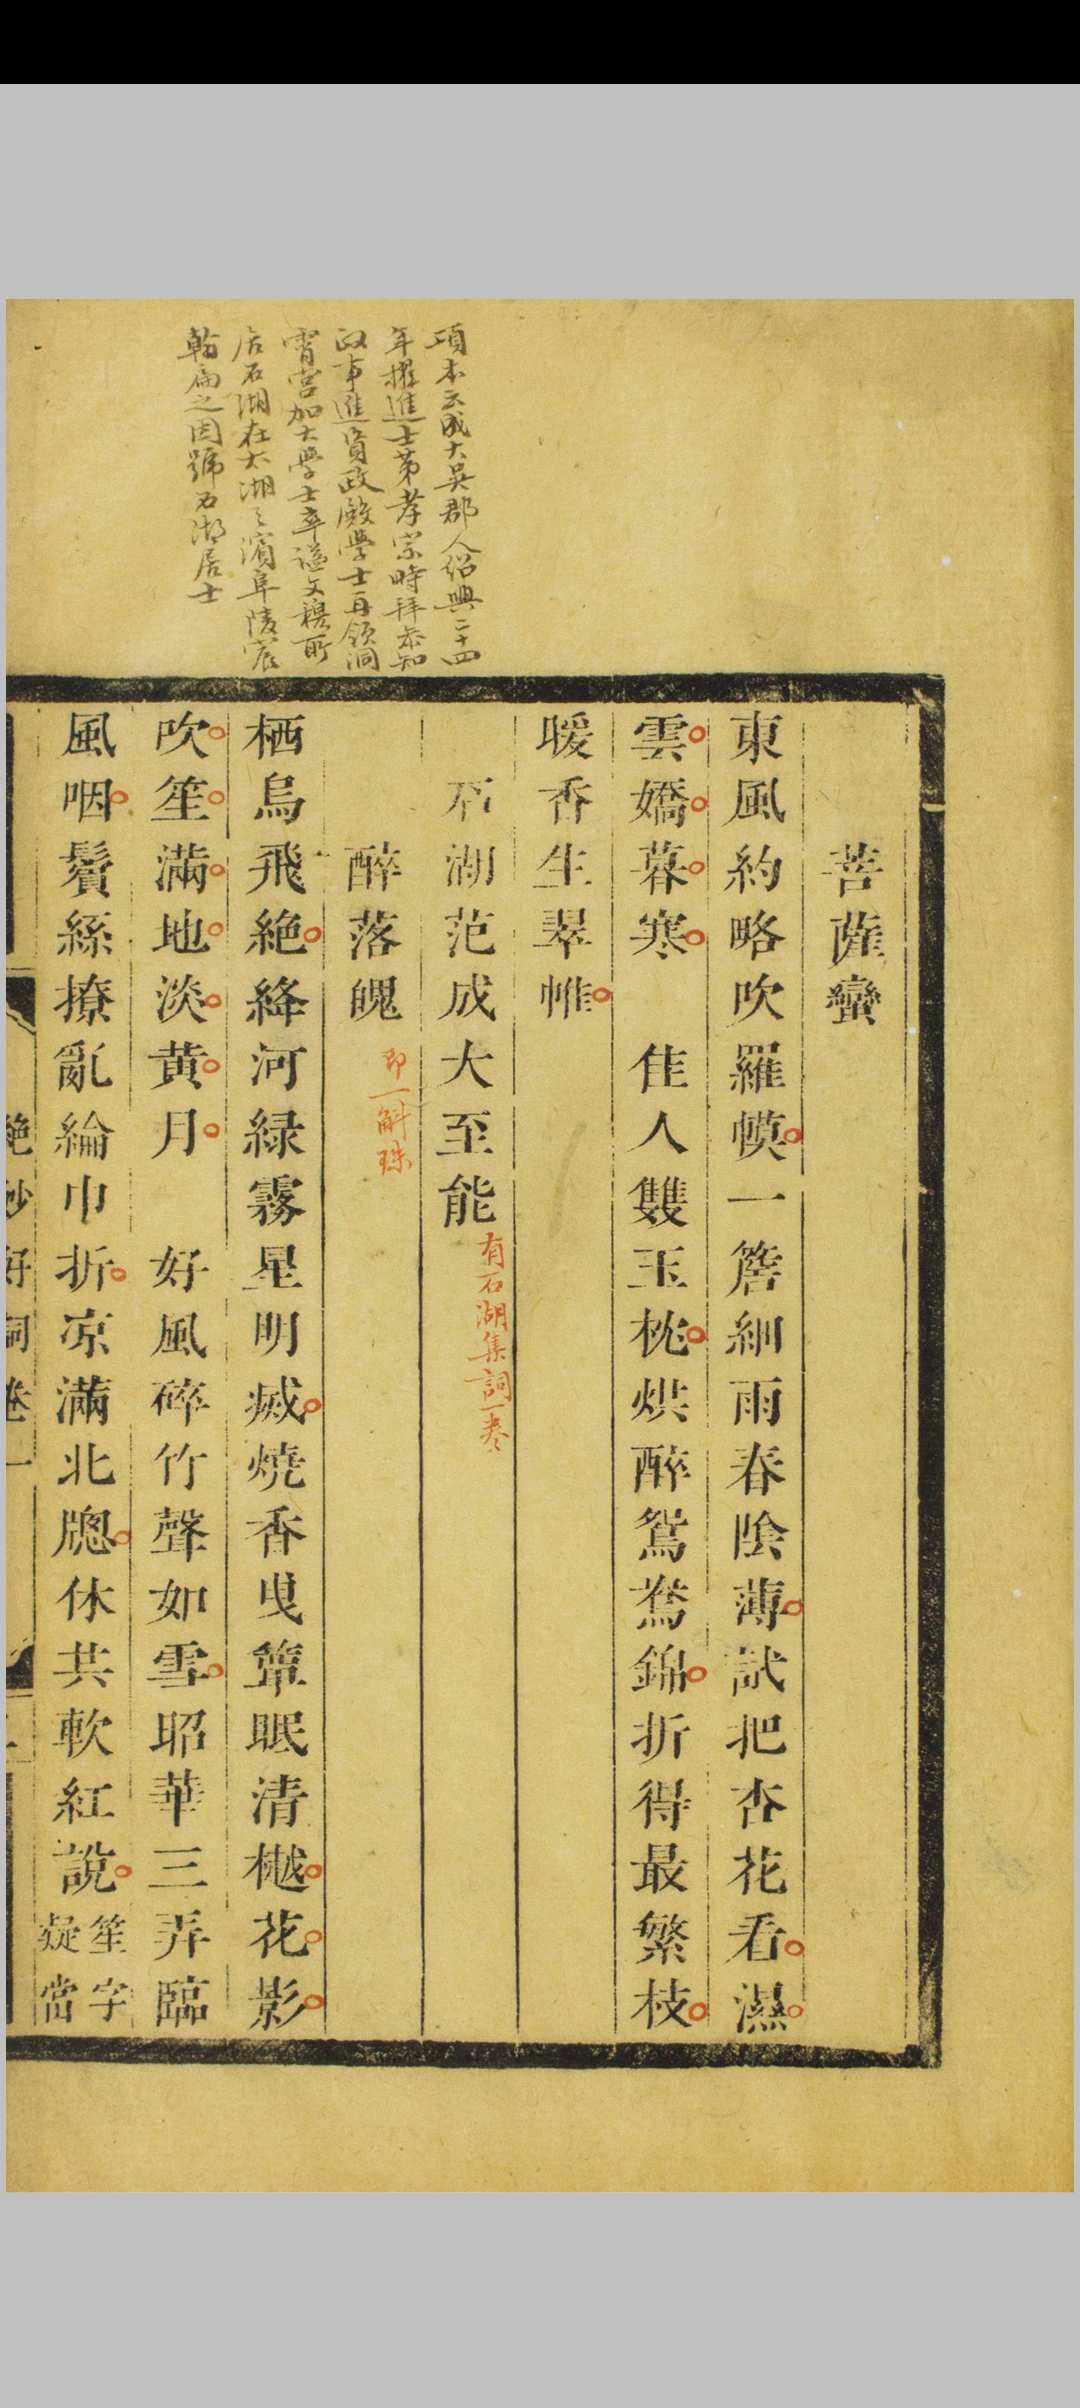 項本云成大吳郡人紹興二十四
年擢進士第孝宗時拜參知
政事進資政殿學士再領洞
霄宮加大學士卒謚文穆所
居石湖在太湖之濱阜陵宸
翰扁之因號石湖居士
菩薩蠻
東風約略吹羅幙一簷細雨春陰薄試把杏花看濕
雲嬌暮寒 佳人雙玉枕烘醉鴛鴦錦折得最繁枝
暖香生翠帷
石湖范成大至能
有石湖集詞一卷
醉落魄
即一斛珠
栖烏飛絶絳河綠霧星明滅燒香曳簟眠清樾花影
吹笙滿地淡黃月 好風碎竹聲如雪昭華三弄臨
風咽鬢絲撩亂綸巾折凉滿北牕休共軟紅說
笙字
疑當
絶妙好詞卷一